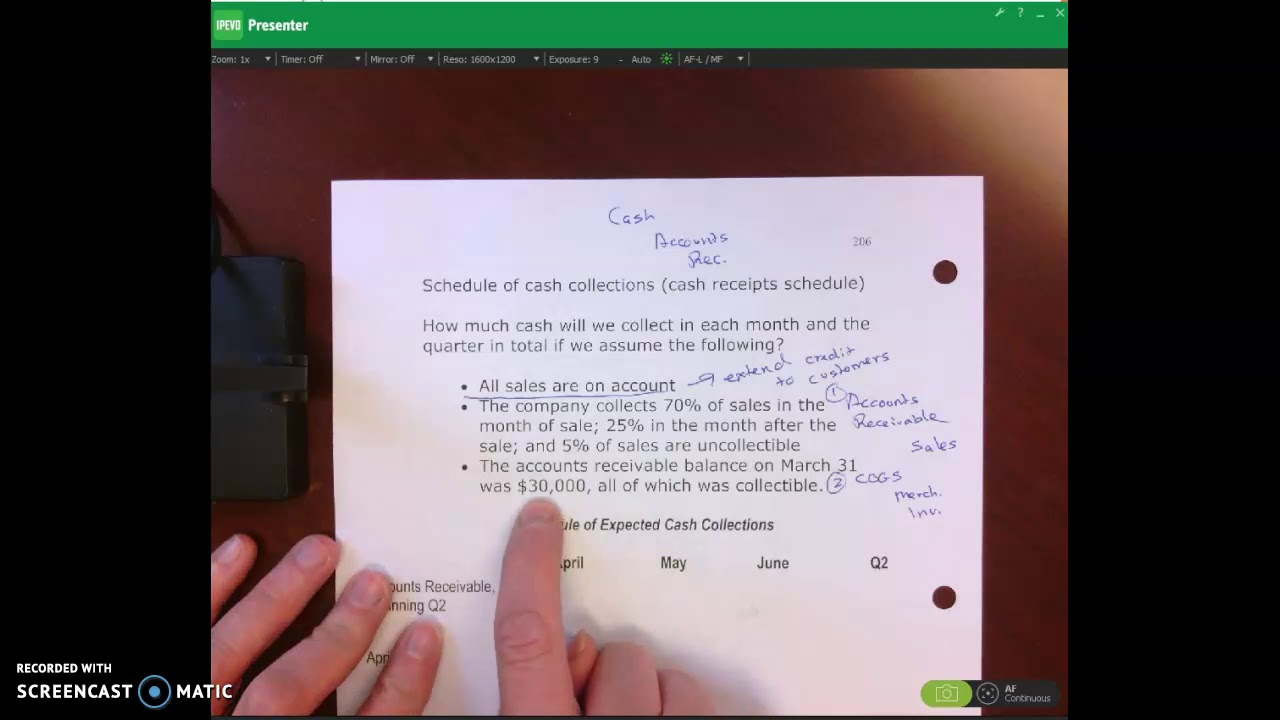 IPEVO Presenter
Zoom: 1x Timer: Off Mirror: Off Reso: 1600x1200 Exposure: 9 - Auto AF-L / MF
Cash
Accounts
Rec.
206
Schedule of cash collections (cash receipts schedule)
How much cash will we collect in each month and the
quarter in total if we assume the following?
• All sales are on account → extend credit
to customers
• The company collects 70% of sales in the
month of sale; 25% in the month after the
sale; and 5% of sales are uncollectible
① Accounts
Receivable
Sales
• The accounts receivable balance on March 31
was $30,000, all of which was collectible.
② COGS
merch.
Inv.
ule of Expected Cash Collections
pril May June Q2
ounts Receivable,
nning Q2
Apri
RECORDED WITH
SCREENCAST MATIC
AF
Continuous